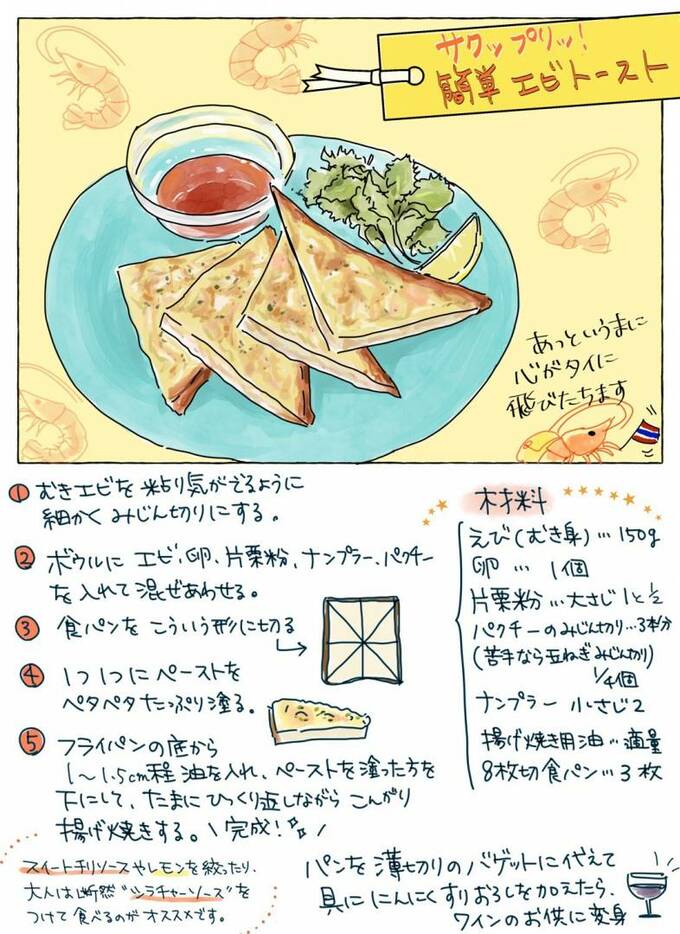 サクップリッ!
簡単 エビトースト
あっというまに
心がタイに
飛びたちます
① むきエビを 粘り気がでるように
細かく みじん切りにする。
② ボウルに エビ、卵、片栗粉、ナンプラー、パクチー
を入れて 混ぜあわせる。
③ 食パンを こういう形に切る
④ 1つ1つに ペーストを
ペタペタ たっぷり塗る。
⑤ フライパンの底から
1〜1.5cm程 油を入れ、ペーストを塗った方を
下にして、たまに ひっくり返しながら こんがり
揚げ焼きする。\ 完成! /
スイートチリソースやレモンを絞ったり、
大人は断然“シラチャーソース”を
つけて 食べるのが オススメです。
材料
えび(むき身)…150g
卵 … 1個
片栗粉…大さじ1と½
パクチーのみじん切り…3本分
(苦手なら玉ねぎみじん切り)
¼個
ナンプラー 小さじ2
揚げ焼き用油…適量
8枚切食パン…3枚
パンを 薄切りの バゲットに代えて
具に にんにくすりおろしを加えたら、
ワインのお供に変身